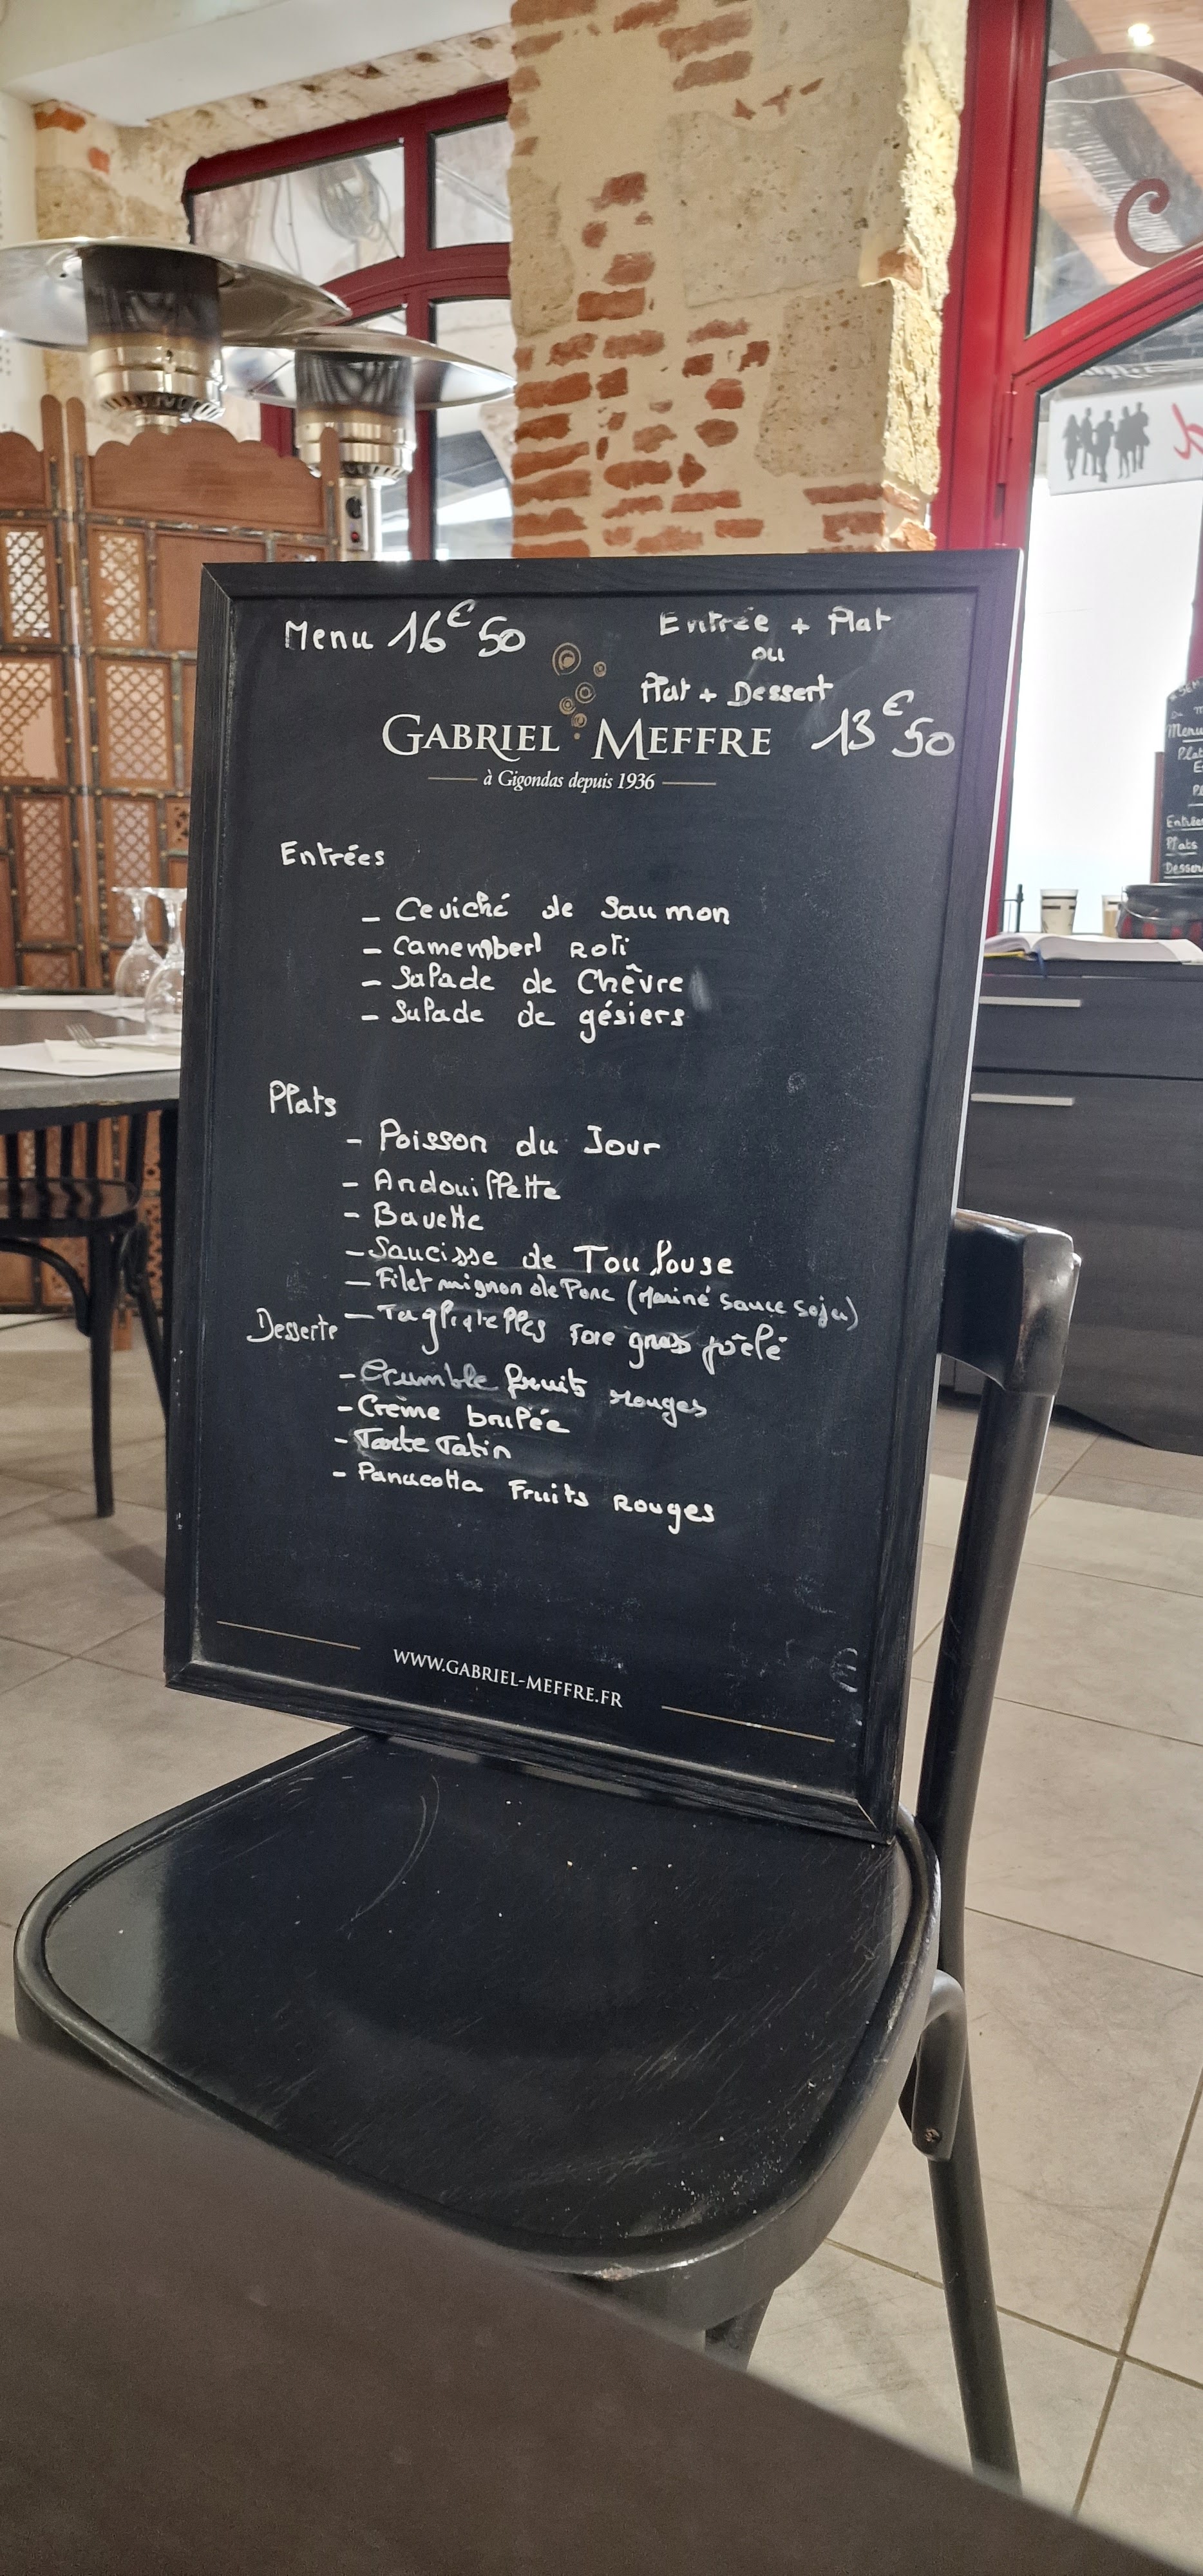 Menu 16€50
Entrée + Plat
ou
Plat + Dessert
13€50
GABRIEL MEFFRE
à Gigondas depuis 1936
Entrées
- Ceviché de Saumon
- Camembert Roti
- Salade de Chêvre
- Salade de gésiers
Plats
- Poisson du Jour
- Andouillette
- Bavette
- Saucisse de Toulouse
- Filet mignon de Porc (Mariné sauce soja)
- Tagliatelles Foie gras poêlé
Desserts
- Crumble fruits rouges
- Crème brulée
- Tarte Tatin
- Panacotta Fruits Rouges
WWW.GABRIEL-MEFFRE.FR
€
Menu
Plat
Entrées
Plats
Desser